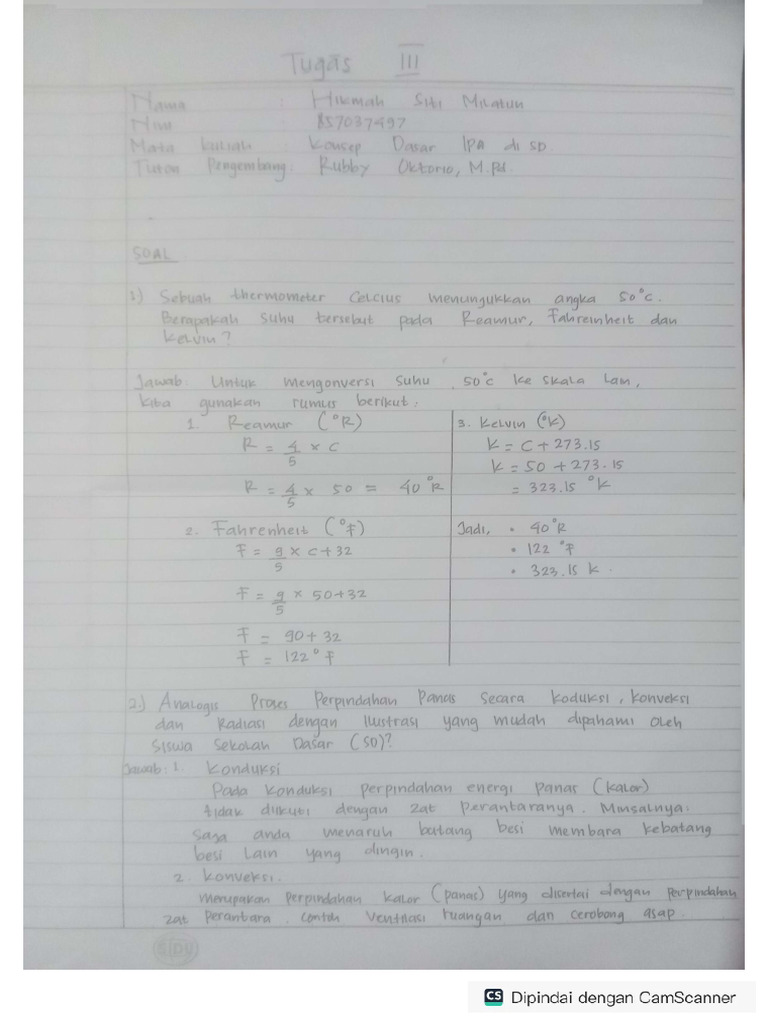 Tugas III
Nama : Hikmah Siti Milatun
Nim : 857037497
Mata kuliah : Konsep Dasar IPA di SD
Tuton Pengembang : Rubby Oktorio, M.Pd
SOAL
1) Sebuah thermometer Celcius menungukkan angka 50°C.
Berapakah suhu tersebut pada Reamur, Fahreinheit dan
Kelvin?
Jawab : Untuk mengonversi suhu 50°C ke skala lain,
kita gunakan rumus berikut :
1. Reamur (°R)
R = 4/5 × C
R = 4/5 × 50 = 40°R
2. Fahrenheit (°F)
F = 9/5 × C + 32
F = 9/5 × 50 + 32
F = 90 + 32
F = 122°F
3. Kelvin (°K)
K = C + 273.15
K = 50 + 273.15
= 323.15 °K
Jadi, • 40°R
• 122 °F
• 323.15 K.
2.) Analogis Proses Perpindahan Panas Secara Koduksi, Konveksi
dan Radiasi dengan Ilustrasi yang mudah dipahami Oleh
Siswa Sekolah Dasar (SD)?
Jawab : 1. Konduksi
Pada Konduksi perpindahan energi panas (kalor)
tidak diikuti dengan zat perantaranya. Misalnya :
Saja anda menaruh batang besi membara kebatang
besi Lain yang dingin.
2. Konveksi.
Merupakan Perpindahan Kalor (panas) yang disertai dengan Perpindahan
zat Perantara. Contoh Ventilasi ruangan dan cerobong asap.
SIDU
CS Dipindai dengan CamScanner